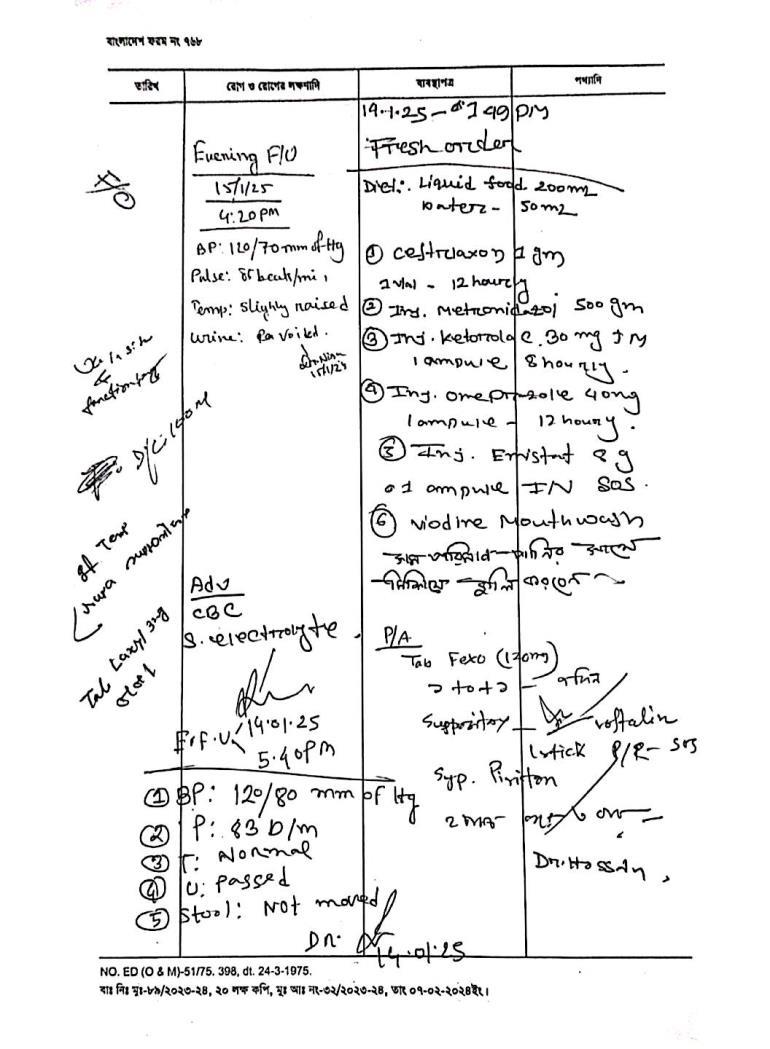 বাংলাদেশ ফরম নং ৭৬৮
তারিখ
রোগ ও রোগের লক্ষণাদি
ব্যবস্থাপত্র
পথ্যাদি
Evening F/U
15/1/25
4:20 PM
BP: 120/70 mm of Hg
Pulse: 85 beat/min
Temp: Slighly raised
Urine: Voided.
15/1/25
functioning
D/C
Temp
Tab Laxyl 3mg
Adv
CBC
S. electrolyte.
14.01.25
E.F.U
5.40pm
① BP: 120/80 mm of Hg
② P: 83 b/m
③ T: Normal
④ U: Passed
⑤ Stool: Not moved
Dr.
14.01.25
14.1.25 - 1 49 PM
Fresh order
Diet: Liquid food 200ml
water - 50ml
① ceftriaxon 1 gm
1 vial - 12 hourly
② Inj. Metronidazol 500 gm
③ Inj. ketorolac 30 mg IM
1 ampule 8 hourly.
④ Inj. omeprazole 40mg
1 ampule - 12 hourly.
⑤ Inj. Emistat 8 g
1 ampule I/V SOS.
⑥ Viodine Mouthwash
P/A
Tab Fexo (120mg)
Suppository
voltalin
1 stick P/R - SOS
Syp. Piriton
Dr. Hossain,
NO. ED (O & M)-51/75. 398, dt. 24-3-1975.
বাঃ নিঃ মুঃ-৮৯/২০২৩-২৪, ২০ লক্ষ কপি, মুঃ আঃ নং-৩২/২০২৩-২৪, তাং ০৭-০২-২০২৪ইং।